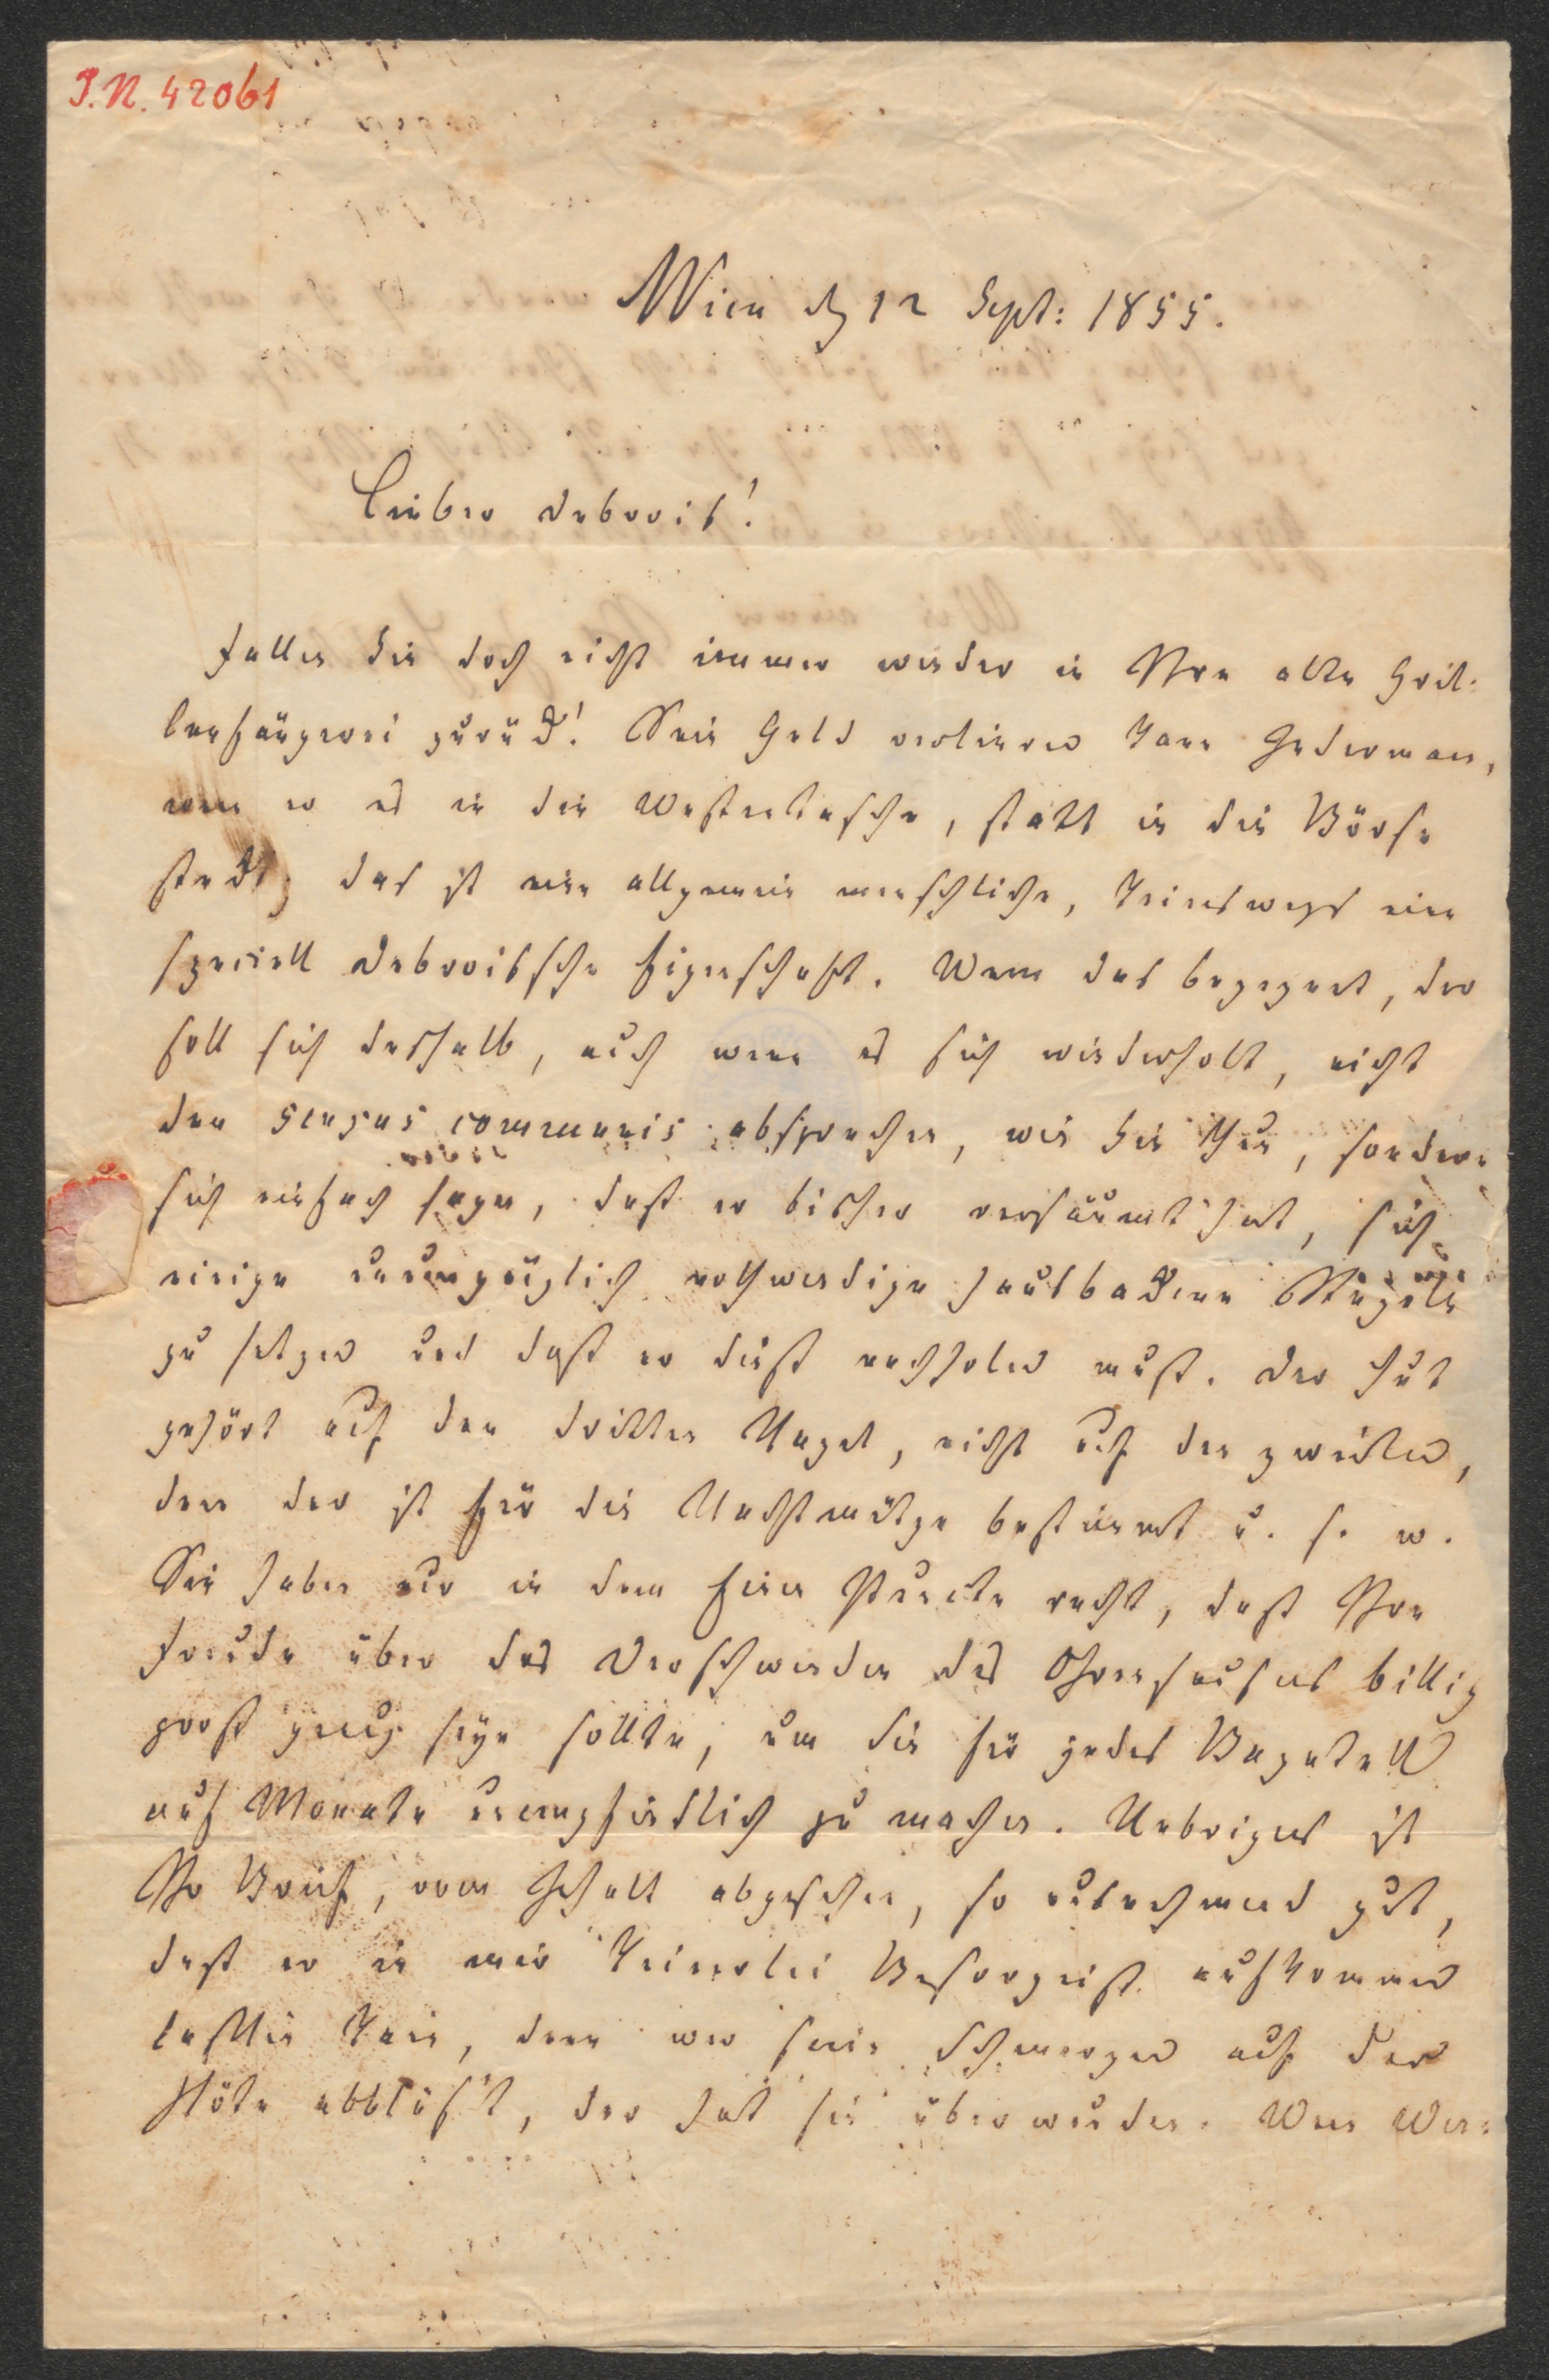 I.N. 42061
Wien d 12 Sept: 1855.
Lieber Debrois!
Fallen Sie doch nicht immer wieder in Ihre alte Gril-
lenfängerei zurück! Sein Geld verlieren kann Jedermann,
wenn er es in die Westentasche, statt in die Börse
steckt; das ist eine allgemein menschliche, keineswegs eine
speciell Debroissche Eigenschaft. Wem das begegnet, der
soll sich deshalb, auch wenn es sich wiederholt, nicht
den sensus communis absprechen, wie Sie thun, sondern
sich einfach sagen, daß er bisher versäumt hat, sich
einige unumgänglich nothwendige hausbackene Regeln
zu setzen und daß er dieß nachholen muß. Der Hut
gehört auf den dritten Nagel, nicht auf den zweiten,
denn der ist für die Nachtmütze bestimmt u. s. w.
Sie haben nur in dem Einen Puncte recht, daß Ihre
Freude über das Verschwinden des Ohrensausens billig
groß genug seyn sollte, um Sie für jedes Bagatell
auf Monate unempfindlich zu machen. Uebrigens ist
Ihr Brief, vom Inhalt abgesehen, so ausnehmend gut,
daß er in mir keinerlei Besorgniß aufkommen
ließ, denn wer seine Schmerzen auf der
Flöte abbläs't, der hat sie überwunden. Was Wer-